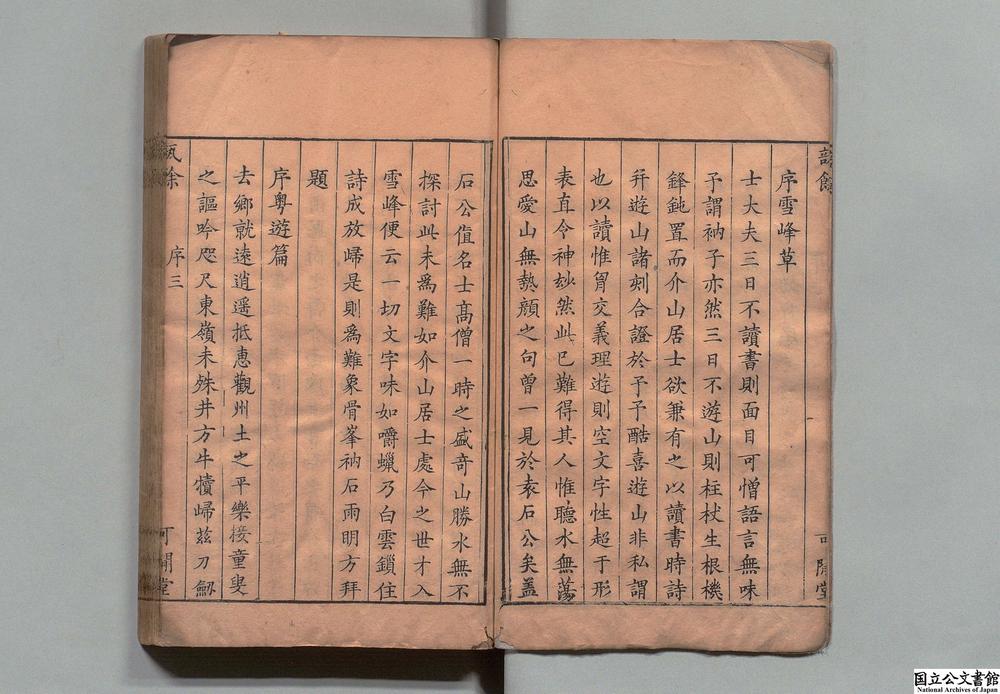 序雪峰草
士大夫三日不讀書則面目可憎語言無味
予謂衲子亦然三日不遊山則柱杖生根機
鋒鈍置而介山居士欲兼有之以讀書時詩
幷遊山諸刻合證於予予酷喜遊山非私謂
也以讀惟胷交義理遊則空文字性超于形
表直令神玅然此已難得其人惟聽水無蕩
思愛山無㙯顔之句曾一見於袁石公矣盖
石公值名士高僧一時之盛奇山勝水無不
探討此未爲難如介山居士處今之世才入
雪峰便云一切文字味如嚼蠟乃白雲鎖住
詩成放歸是則爲難象骨峯衲石雨明方拜
題
序粤遊篇
去鄉就遠逍遥抵惠觀州土之平樂接童叟
之謳吟咫尺東嶺未殊井方牛犢歸茲刀劔
序三
可閒堂
国立公文書館
National Archives of Japan